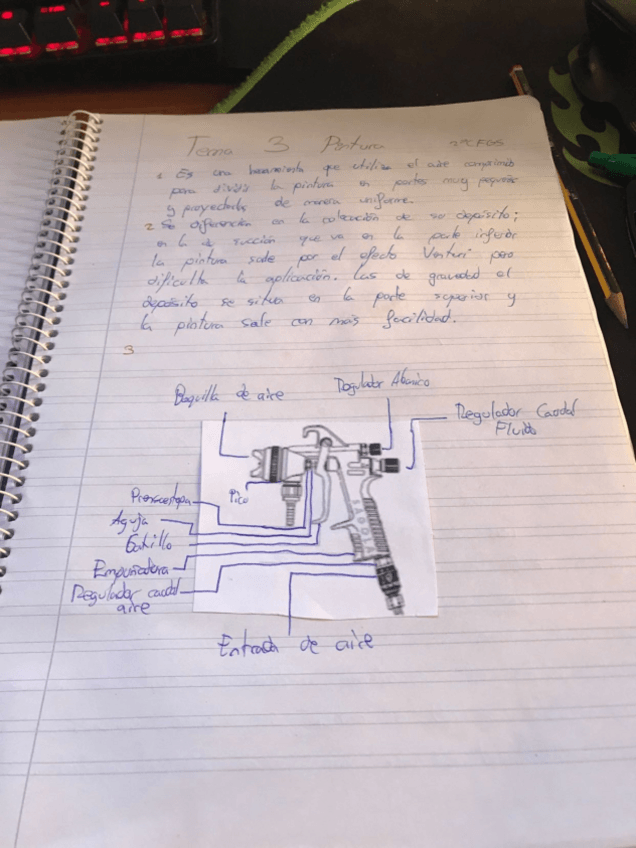 Tema 3 Pintura 2ºCFGS
1. Es una herramienta que utiliza el aire comprimido
para dividir la pintura en partes muy pequeñas
y proyectarla de manera uniforme.
2. Se diferencian en la colocación de su depósito;
en la de succión que va en la parte inferior
la pintura sale por el efecto Venturi pero
dificulta la aplicación. Las de gravedad el
depósito se situa en la parte superior y
la pintura sale con más facilidad.
3
Boquilla de aire
Regulador Abanico
Regulador Caudal
Fluido
Prensaestopa
Pico
Aguja
Gatillo
Empuñadura
Regulador caudal
aire
Entrada de aire
SAGOLA